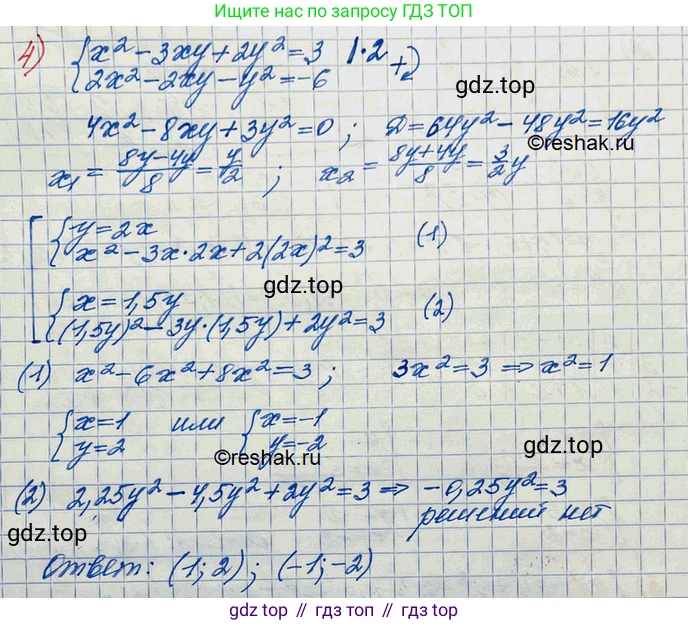 Ищите нас по запросу ГДЗ ТОП
4) { x² - 3xy + 2y² = 3 | · 2
{ 2x² - 2xy - y² = -6 +
gdz.top
4x² - 8xy + 3y² = 0 ; Д = 64y² - 48y² = 16y²
©reshak.ru
x₁ = (8y - 4y)/8 = y/2 ; x₂ = (8y + 4y)/8 = 3/2 y
[ { y = 2x
{ x² - 3x · 2x + 2(2x)² = 3 (1)
gdz.top
{ x = 1,5y
{ (1,5y)² - 3y · (1,5y) + 2y² = 3 (2)
(1) x² - 6x² + 8x² = 3 ; 3x² = 3 ⇒ x² = 1
{ x = 1 или { x = -1
{ y = 2 { y = -2
gdz.top
©reshak.ru
(2) 2,25y² - 4,5y² + 2y² = 3 ⇒ -0,25y² = 3
решений нет
gdz.top
Ответ: (1; 2) ; (-1; -2)
gdz.top // гдз топ // гдз.топ